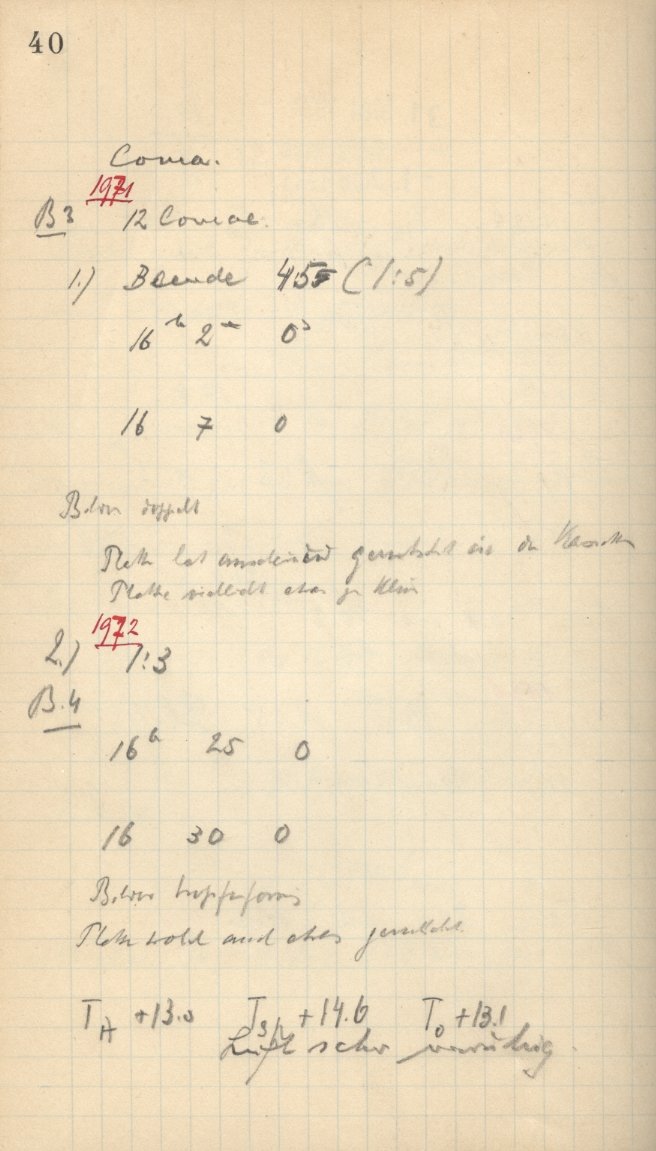 40
Coma.
1971
B3 12 Comae.
1.) Blende 455 (1:5)
16h 2m 0s
16 7 0
Bilder doppelt
Platte hat anscheinend gerutscht in der Kassette
Platte vielleicht etwas zu klein
1972
2.) 1:3
B.4
16h 25 0
16 30 0
Bilder tropfenförmig
Platte wohl auch etwas gerutscht.
TH +13.0 T +14.6 To +13.1
Luft sehr unruhig.